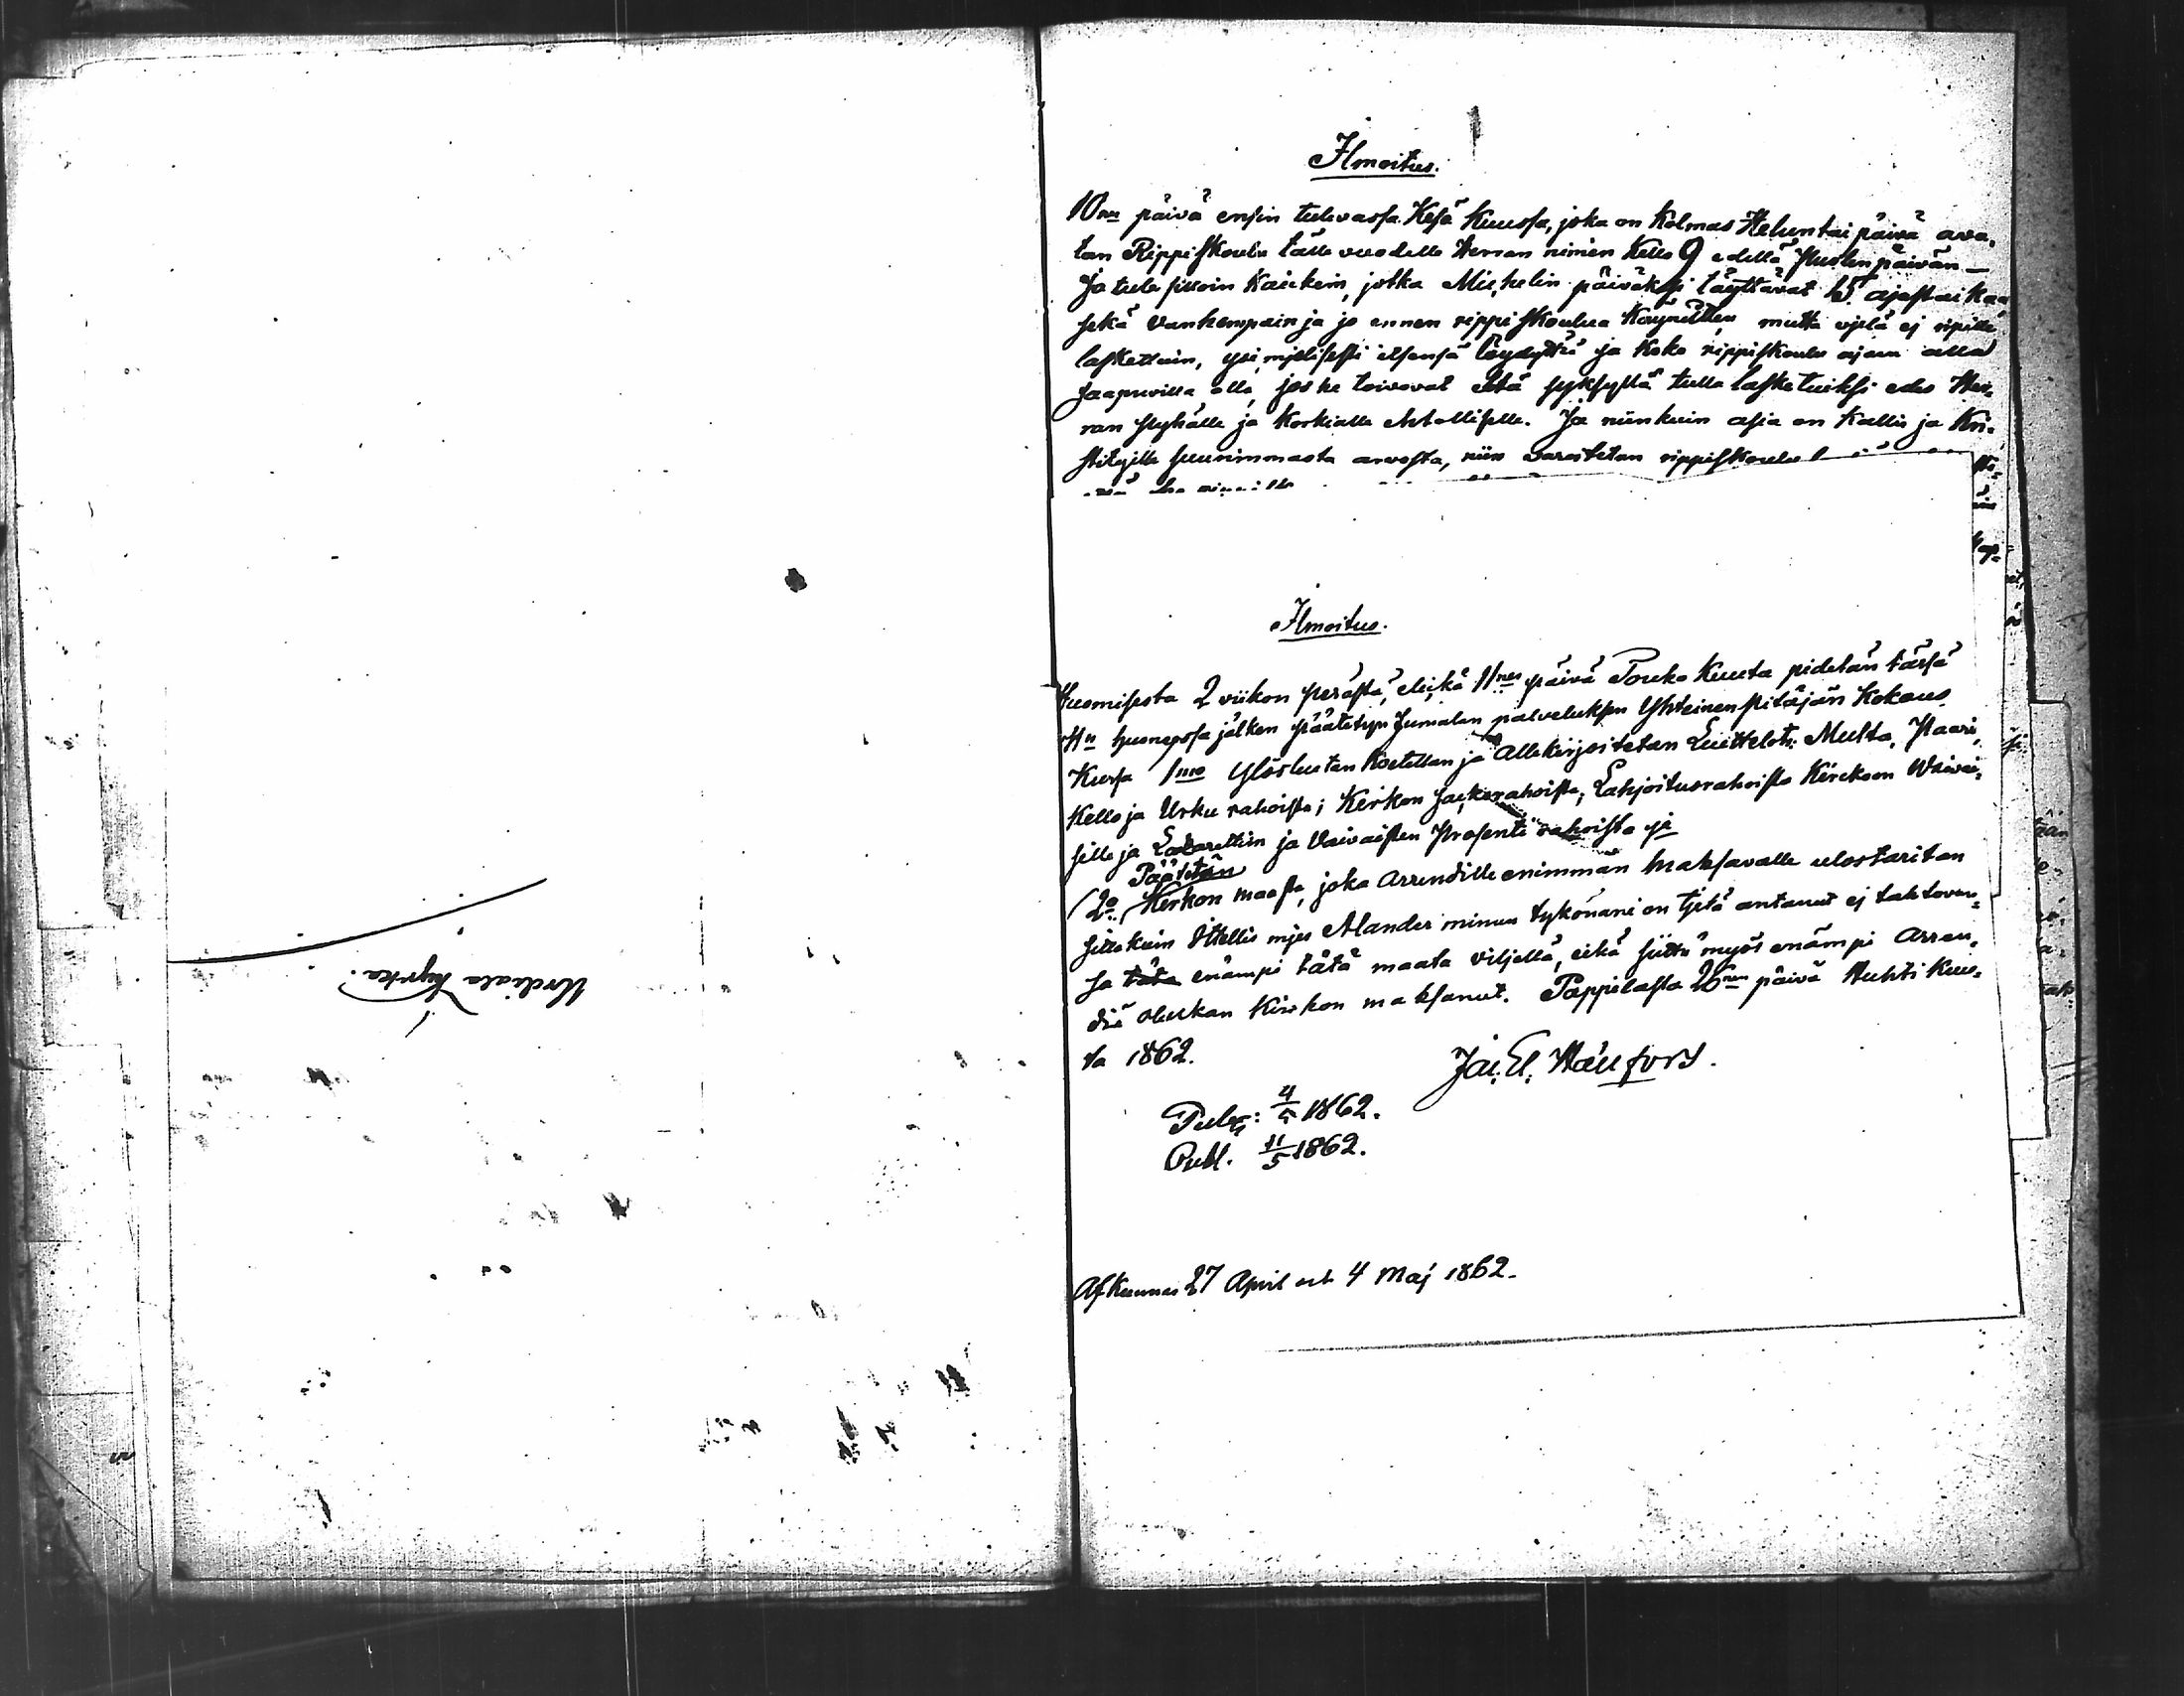 Urdiala Kyrka.
Ilmoitus.
10nen päivä ensin tulevassa Kesä Kuussa, joka on Kolmas Heluntai päivä ava,
tan Rippiskoulu tälle vuodelle Herran nimen Kello 9 edellä Puolenpäivän —
Ja tule silloin Kaikein, jotka Michelin päiväksi täyttävät 15 ajastaikaa
sekä vanhempain ja jo ennen rippiskoulua Käynitten mutta vjelä ej ripille
lasketluin, itsensä löydyttä ja Koko rippiskoulu ajan alla
saapuvilla olla, jos he toivovat että syksyllä tulla lasketuiksi edes Her,
ran pöyhälle ja Korkialle ehtolliselle. Ja niinkuin asia on Kallis ja Kri,
stityille suurimmasta arvosta, niin varoitetan rippiskoulu
Ilmoitus.
Huomisesta 2 viikon perästä, elickä 11nes päivä Touko Kuuta pidetän tässä
Hn huonessa jälken päätetyn Jumalan palveluksen Yhteinen pitäjän Kokous
Kusa 1mo Ylösluetan Koetellan ja Allekirjoitetan Luettelot: Multa, Paari,
Kello ja Urku rahoista; Kirkon Säckerahoista; Lahjoitusrahoista Kirckoon Waivai,
sille ja Lazarettiin ja Vaivaisten Prosenti rahoista ja
Päätetän
2o Kirkon maasta, joka Arrendille enimmän maksavalle ulostaritan
sillä kuin mjes Alander minun tykönäni on tjetä antanut ej tahtovan,
sa täta enämpi tätä maata viljellä, eikä siittä myös enämpi Arren,
diä oleskan Kirkon maksanut. Pappilasta 26nen päivä Huhti Kuu,
ta 1862.
Jac. El. Hänfors.
Publ: 4/5 1862.
Publ. 11/5 1862.
Afkunnas 27 April och 4 Maj 1862.